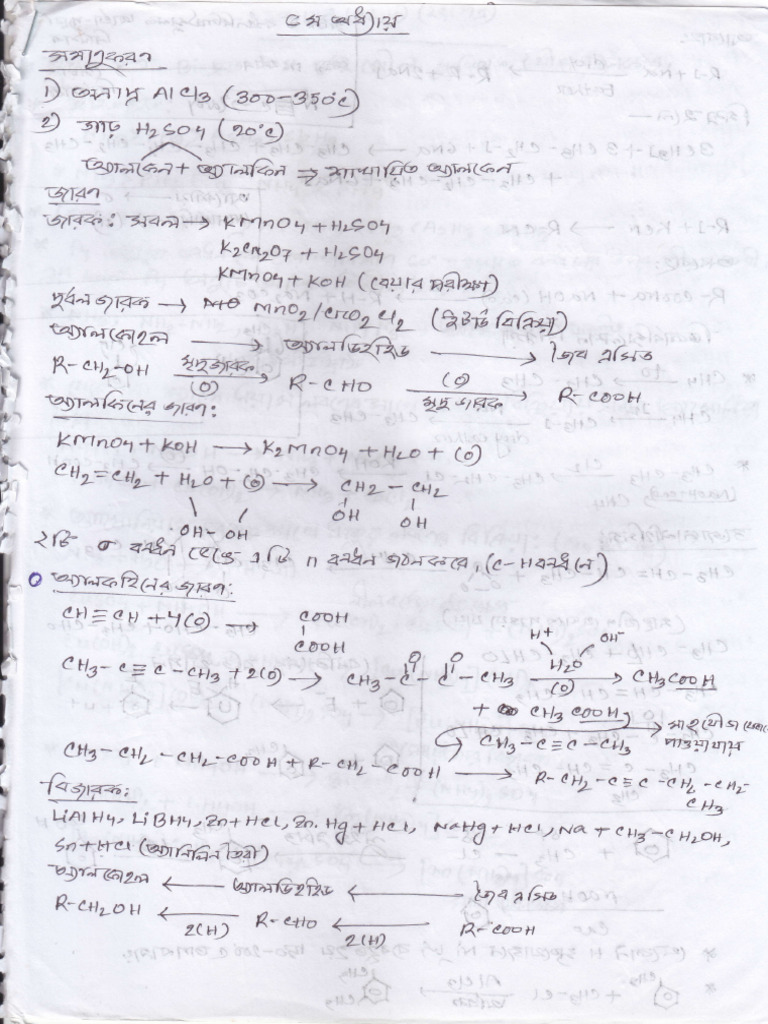 ৫ম অধ্যায়
সমাণুকরণ
1) অনার্দ্র AlCl3 (300-350°C)
2) গাঢ় H2SO4 (20°C)
অ্যালকেন + অ্যালকিন ⇒ শাখায়িত অ্যালকেন
জারণ
জারক: সবল → KMnO4 + H2SO4
K2Cr2O7 + H2SO4
KMnO4 + KOH (বেয়ার পরীক্ষা)
দুর্বল জারক → MnO2/CrO2Cl2 (ইটার্ড বিক্রিয়া)
অ্যালকোহল → অ্যালডিহাইড → জৈব এসিড
R-CH2-OH মৃদু জারক (O) → R-CHO (O) মৃদু জারক → R-COOH
অ্যালকিনের জারণ:
KMnO4 + KOH → K2MnO4 + H2O + (O)
CH2=CH2 + H2O + (O) → CH2-CH2
OH-OH OH OH
২টি σ বন্ধন ভেঙ্গে ১টি π বন্ধন গঠন করে, (C-H বন্ধনে)
অ্যালকাইনের জারণ:
CH≡CH + 4(O) → COOH
COOH
H+ OH-
CH3-C≡C-CH3 + 2(O) → CH3-C(=O)-C(=O)-CH3 H2O (O) → CH3COOH
+ CH3COOH) → পাওয়া যায়
CH3-C≡C-CH3
CH3-CH2-CH2-COOH + R-CH2-COOH → R-CH2-C≡C-CH2-CH2-
CH3
বিজারক:
LiAlH4, LiBH4, Zn+HCl, Zn.Hg+HCl, NaHg+HCl, Na+CH3-CH2OH,
Sn+HCl (অ্যানিলিন তৈরী)
অ্যালকোহল ← অ্যালডিহাইড ← জৈব এসিড
R-CH2OH ← 2(H) R-CHO ← 2(H) R-COOH